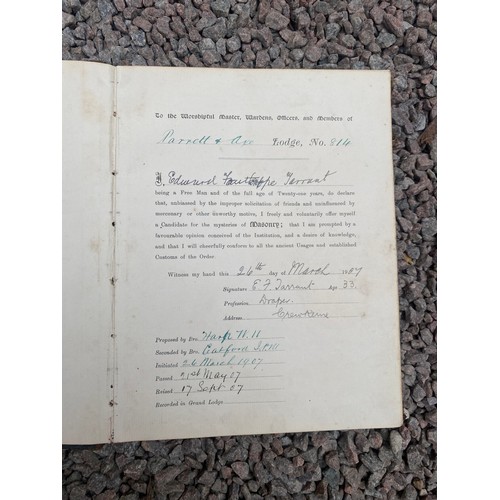 To the Worshipful Master, Wardens, Officers, and Members of
Parrett & Axe Lodge, No. 814
I, Edward Tarrant
being a Free Man and of the full age of Twenty-one years, do declare
that, unbiassed by the improper solicitation of friends and uninfluenced by
mercenary or other unworthy motive, I freely and voluntarily offer myself
a Candidate for the mysteries of Masonry; that I am prompted by a
favourable opinion conceived of the Institution, and a desire of knowledge,
and that I will cheerfully conform to all the ancient Usages and established
Customs of the Order.
Witness my hand this 26th day of March 1907
Signature E. F. Tarrant Age 33.
Profession Draper
Address Crewkerne
Proposed by Bro.
Seconded by Bro.
Initiated 26 March 1907
Passed 21st May 07
Raised 17 Sept 07
Recorded in Grand Lodge